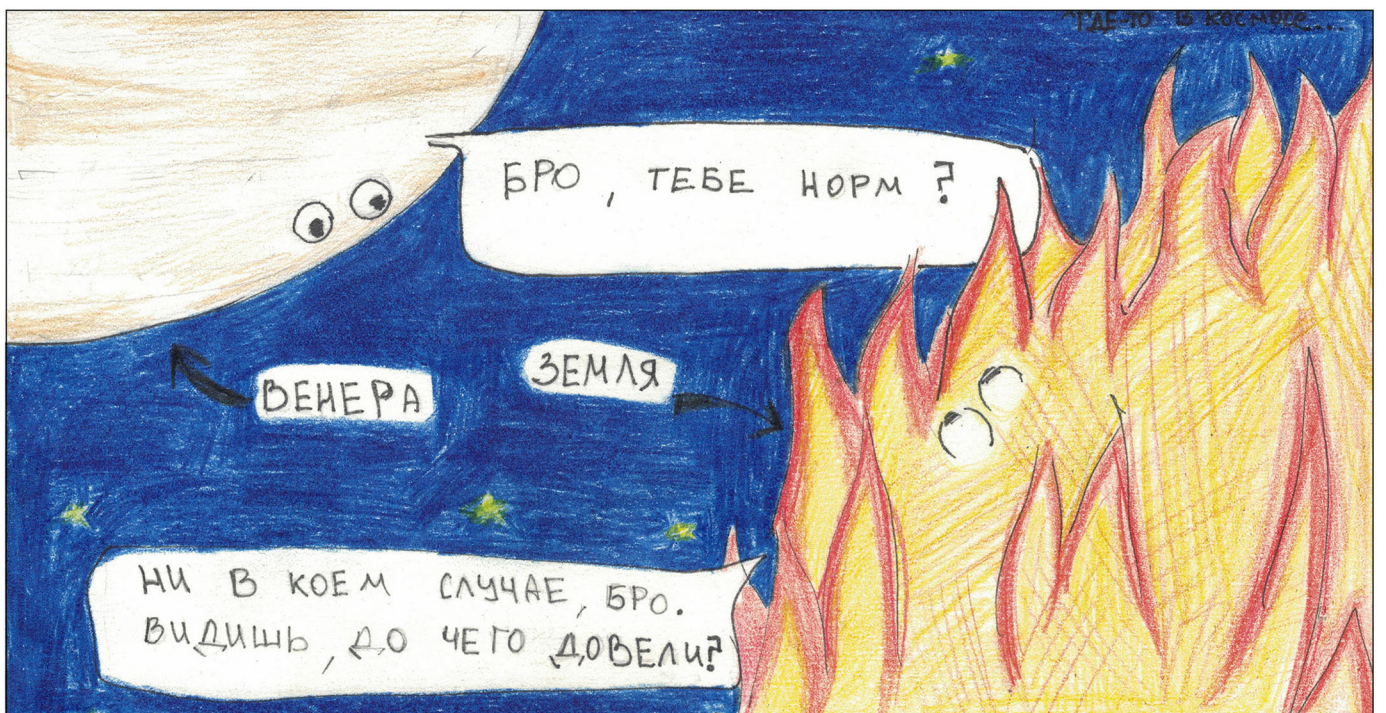 ГДЕ-ТО В КОСМОСЕ...
БРО, ТЕБЕ НОРМ?
ВЕНЕРА
ЗЕМЛЯ
НИ В КОЕМ СЛУЧАЕ, БРО.
ВИДИШЬ, ДО ЧЕГО ДОВЕЛИ?